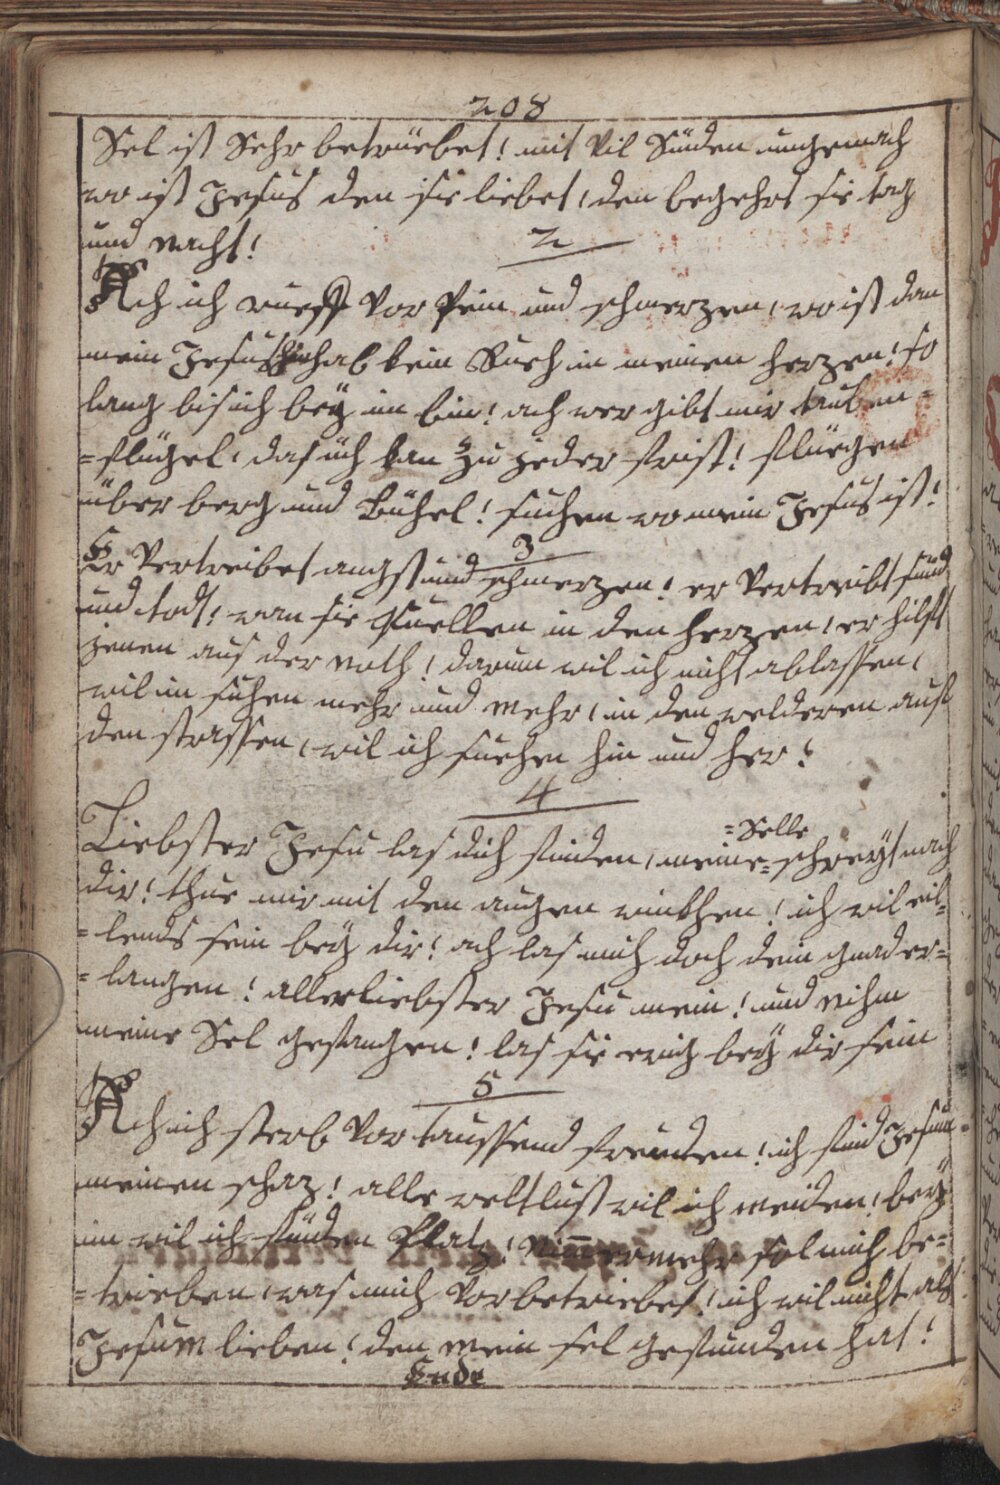 208
Sel ist Sehr betrüebet! mit Vil Sünden ungemach
wo ist Jesus den sie liebet, den begehrt sie tag
und nacht!
2
Ach ich rueff Vor Pein und schmerzen, wo ist dan
mein Jesus hab kein Rueh in meinen herzen! so
lang bis ich beÿ im bin! ach wer gibt mir tauben=
=flügel, das ich kan zu jeder frist! flüegen
über berg und bühel! suchen wo mein Jesus ist!
3
Er Vertreibet angst und schmerzen! er Vertreibt sünd
und todt! wan sie quellen in den herzen! er hilft
jenen aus der noth! darum wil ich nicht ablassen,
wil im suchen mehr und mehr, in den welderen auf
den strassen, wil ich suechen hin und her!
4
=Selle
Liebster Jesu las dich finden, meine= schreÿt nach
dir! thue mir mit den augen winkhen! ich wil eil=
=lends sein beÿ dir! ach las mich doch dein gnad er=
=langen! allerliebster Jesu mein! und nihm
meine Sel gefangen! las sie ewig beÿ dir sein
5
Ach ich sterb Vor taussend freuden! ich find Jesum
meinen schaz! alle weltlust wil ich meiden! beÿ
im wil ich finden Platz! Nim̅ermehr sol mich be=
=trieben, was mich Vor betriebet! ich wil nicht als
Jesum lieben! den mein sel gefunden hat!
Ende